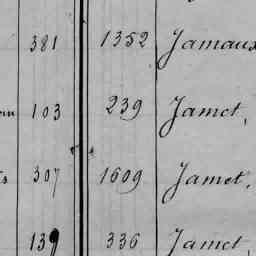 381 1352 Jamaux
103 239 Jamet,
307 1609 Jamet,
139 336 Jamet,